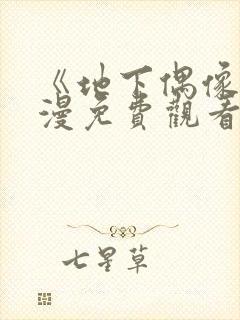 《地下偶像
漫免費觀看
七星草